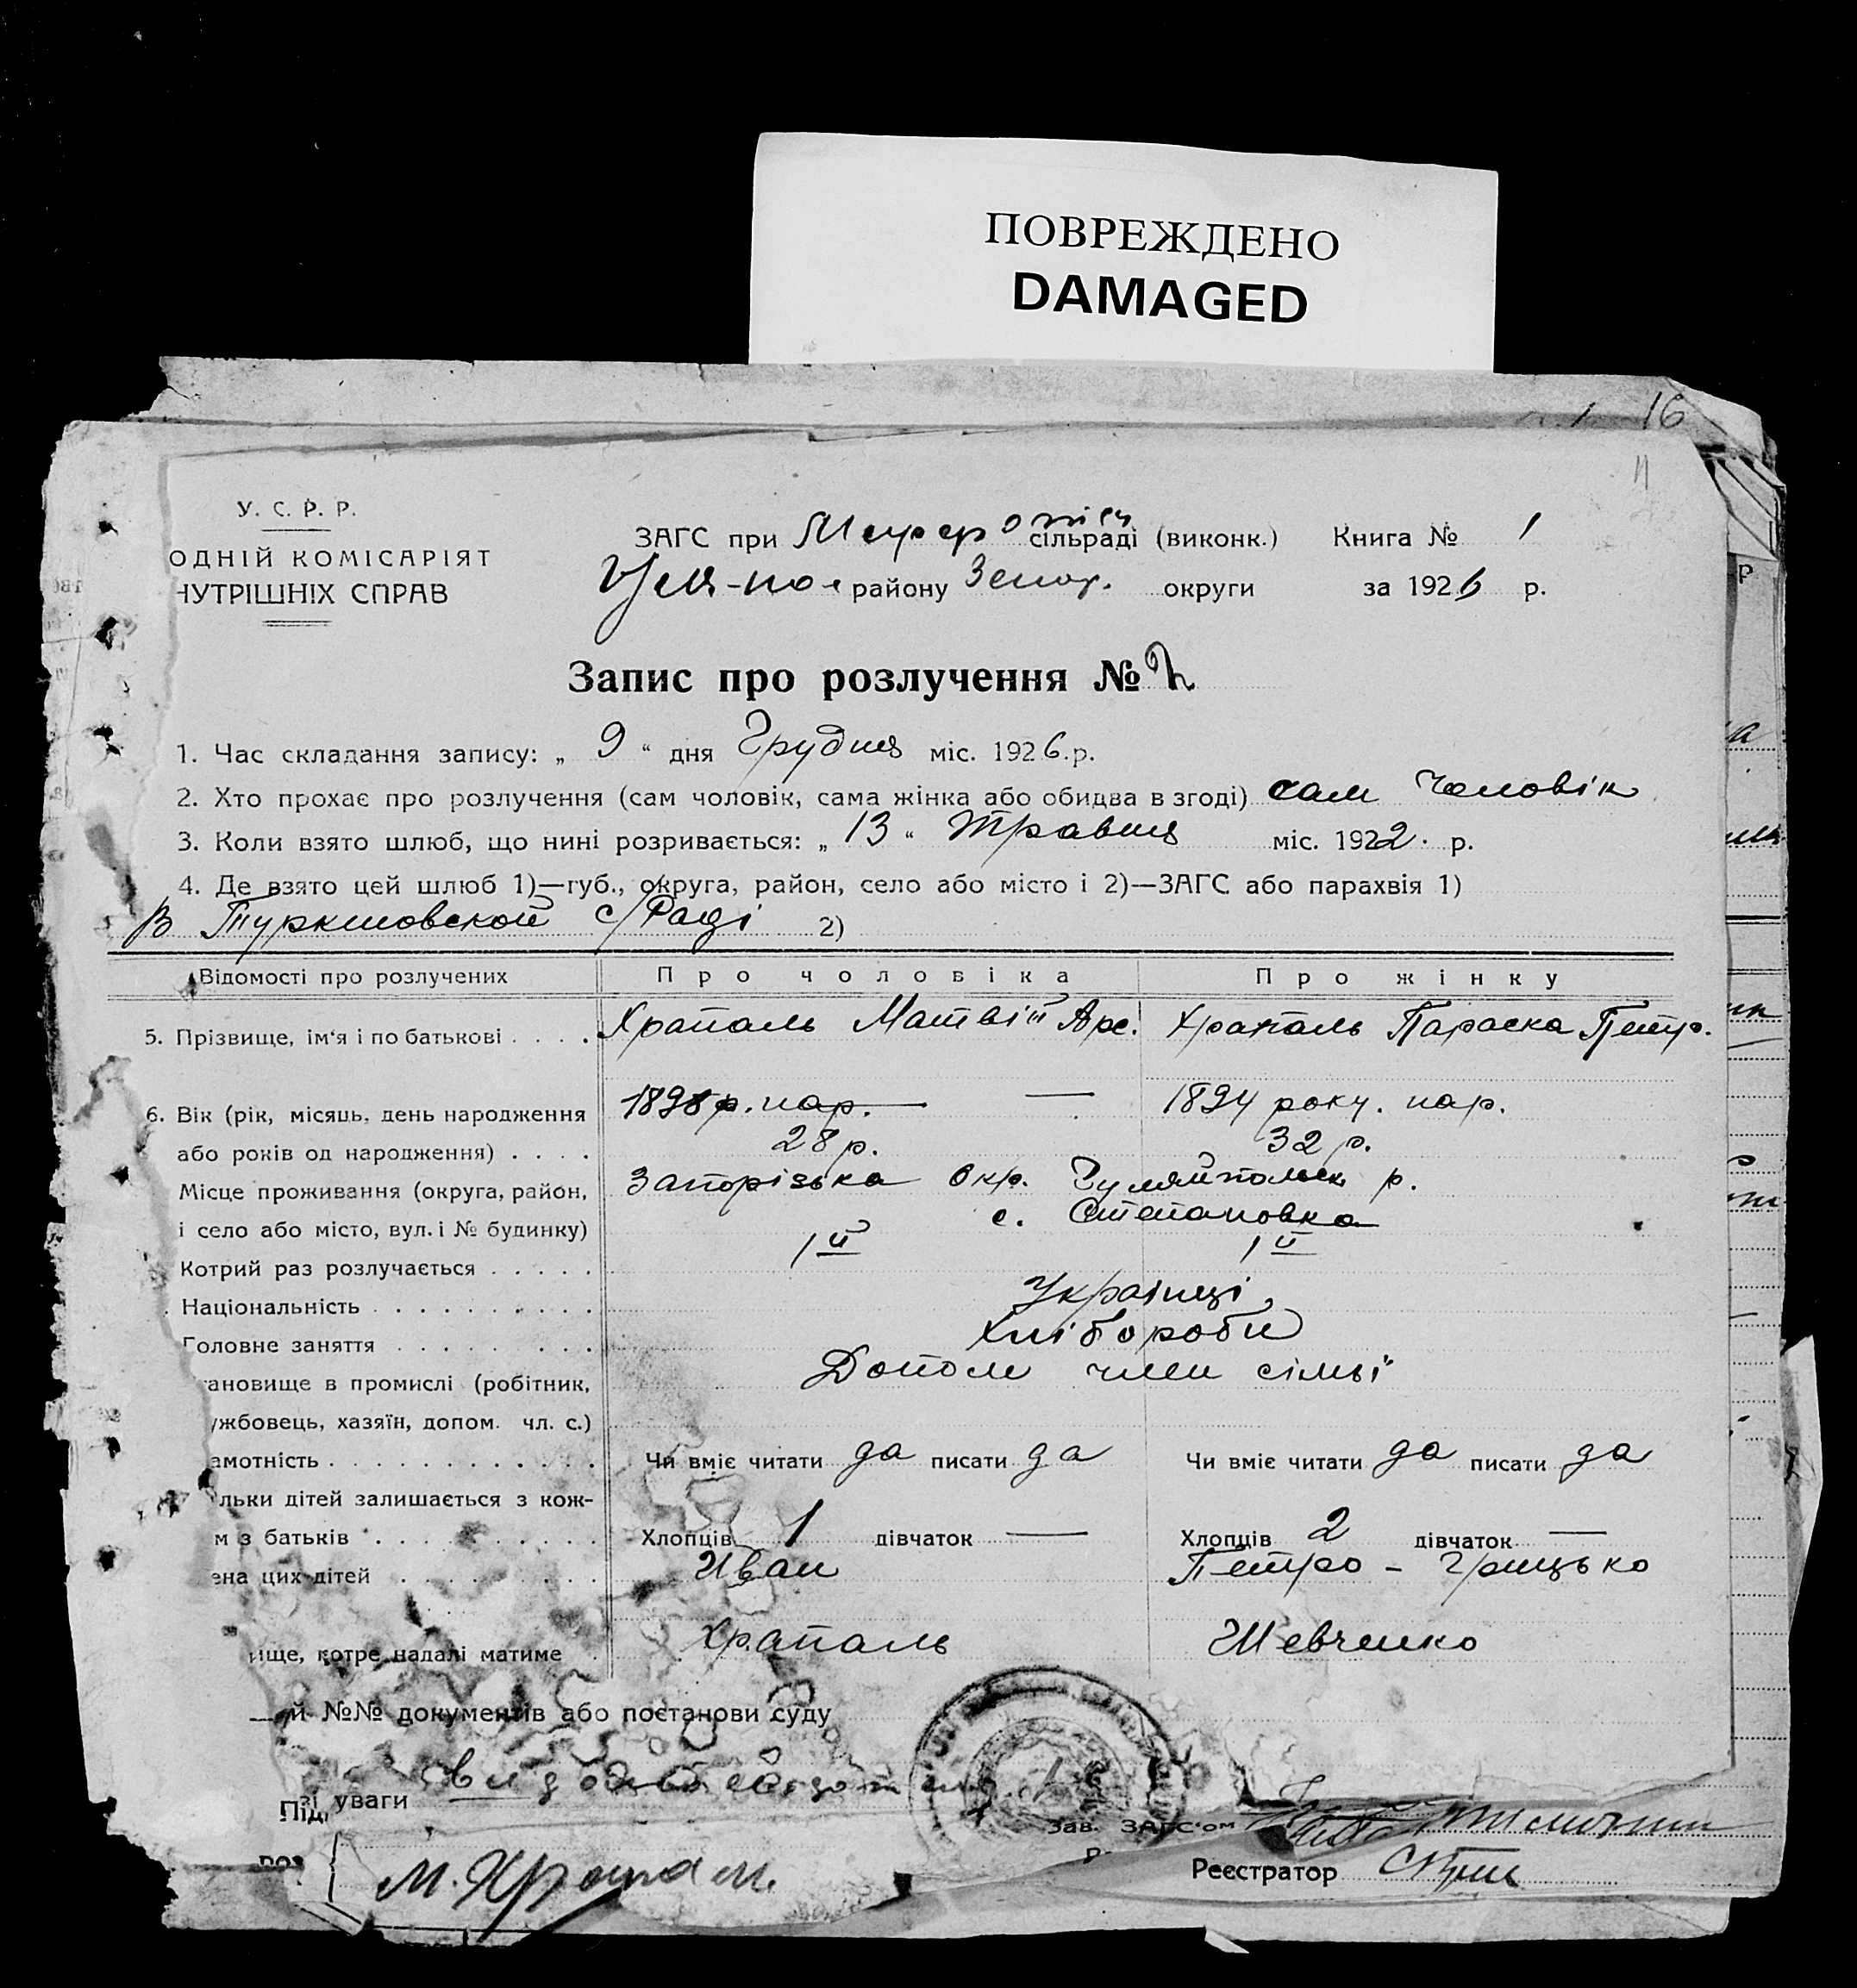 ПОВРЕЖДЕНО
DAMAGED
16
11
У. С. Р. Р.
ОДНІЙ КОМІСАРІЯТ
НУТРІШНІХ СПРАВ
ЗАГС при сільраді (виконк.) Книга № 1
Гуляй-пол району Запор. округи за 1926 р.
Запис про розлучення № 2
1. Час складання запису: „ 9 “ дня Грудня міс. 1926.р.
2. Хто прохає про розлучення (сам чоловік, сама жінка або обидва в згоді) сам чоловік
3. Коли взято шлюб, що нині розривається: „ 13 “ Травня міс. 1922. р.
4. Де взято цей шлюб 1)—губ., округа, район, село або місто і 2)—ЗАГС або парахвія 1)
В Туркеновской с/Раді 2)
Відомості про розлучених Про чоловіка Про жінку
5. Прізвище, ім‘я і по батькові . . . . Храпаль Матвій Арс. Храпаль Параска Петр.
6. Вік (рік, місяць, день народження 1898 р. нар. — 1894 року. нар.
або років од народження) . . . . 28 р. 32 р.
Місце проживання (округа, район, Запорізька Окр. Гуляйпольськ р.
і село або місто, вул. і № будинку) с. Степановка
Котрий раз розлучається . . . . . 1й 1й
Національність . . . . . . . . . . Українці
Головне заняття . . . . . . . . . Хлібороби
тановище в промислі (робітник, Допом член сімьї
ужбовець, хазяїн, допом. чл. с.)
амотність . . . . . . . . . . . . Чи вміє читати да писати да Чи вміє читати да писати да
льки дітей залишається з кож-
м з батьків . . . . . . . . . . Хлопців 1 дівчаток — Хлопців 2 дівчаток —
ена цих дітей . . . . . . . . Иван Петро - Грицько
ище, котре надалі матиме . Храпаль Шевченко
й №№ документів або постанови суду
зі уваги
Під
Зав. ЗАГС‘ом
роз
М. Храпал.
Реєстратор